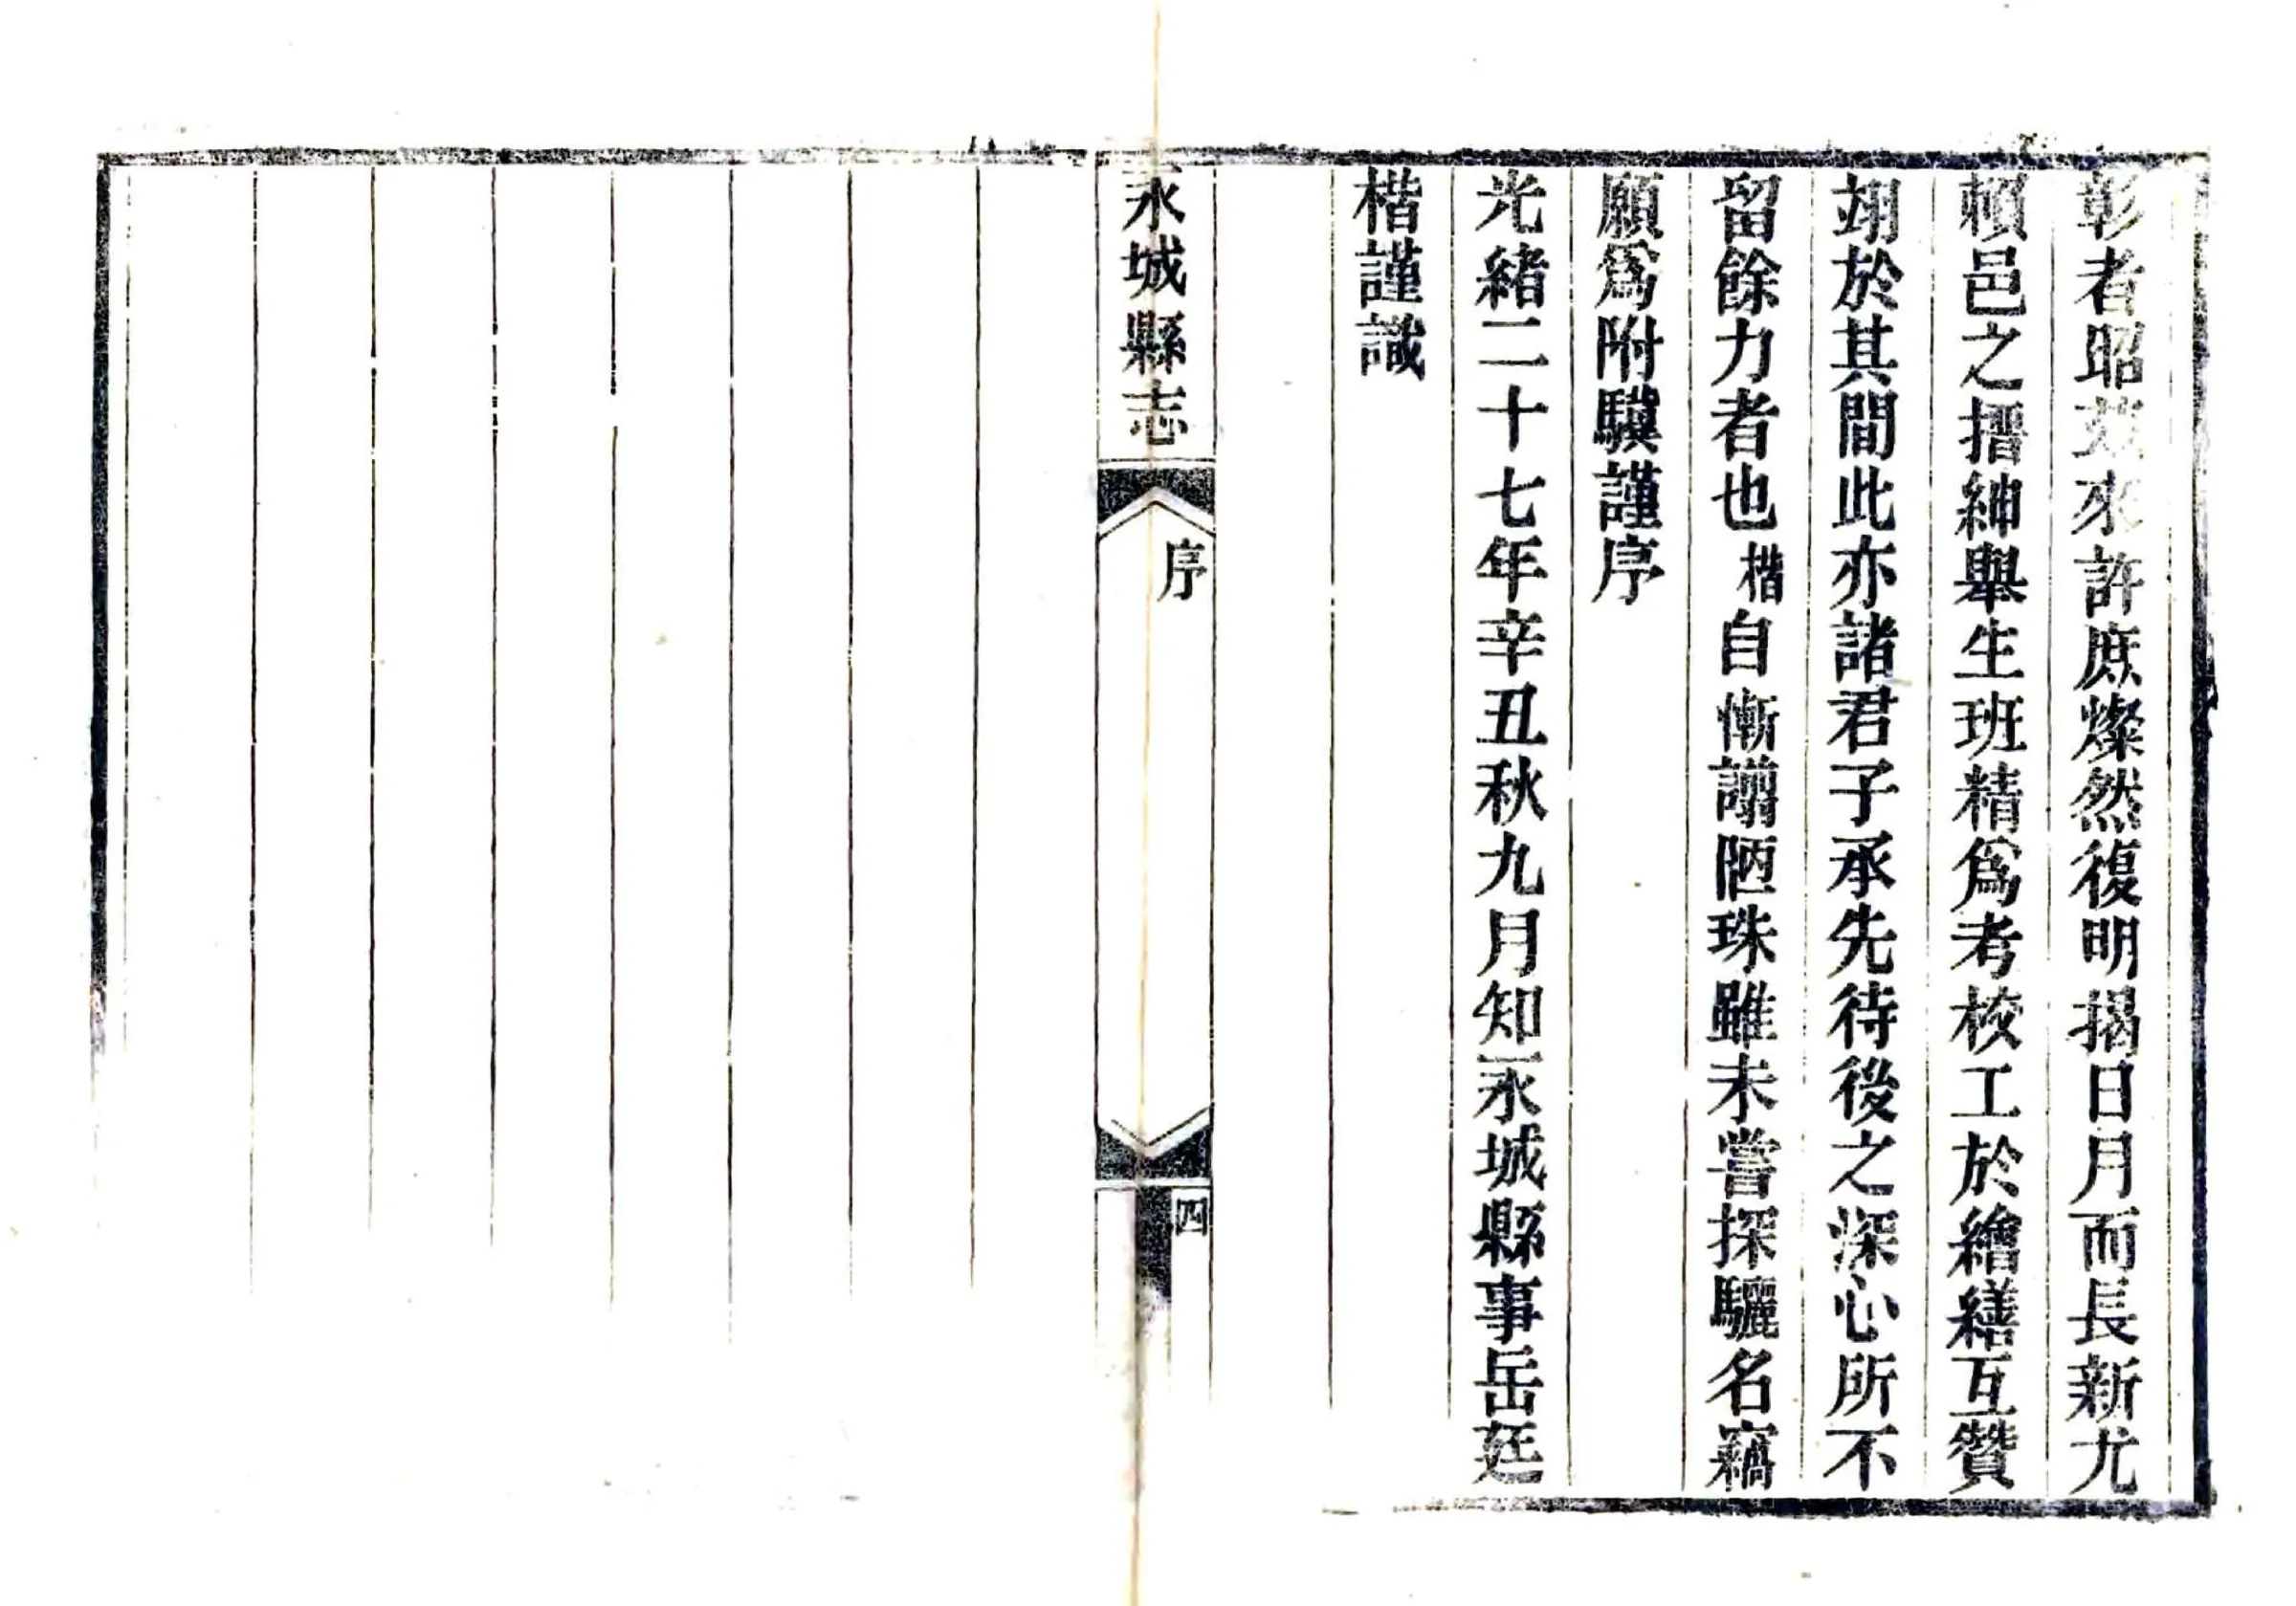 彰者昭茲來許庶燦然復明揭日月而長新尤
賴邑之搢紳舉生班精爲考校工於繪繕互贊
翊於其間此亦諸君子承先待後之深心所不
留餘力者也楷自慚謭陋珠雖未嘗探驪名竊
願爲附驥謹序
光緒二十七年辛丑秋九月知永城縣事岳廷
楷謹識
永城縣志
序
四